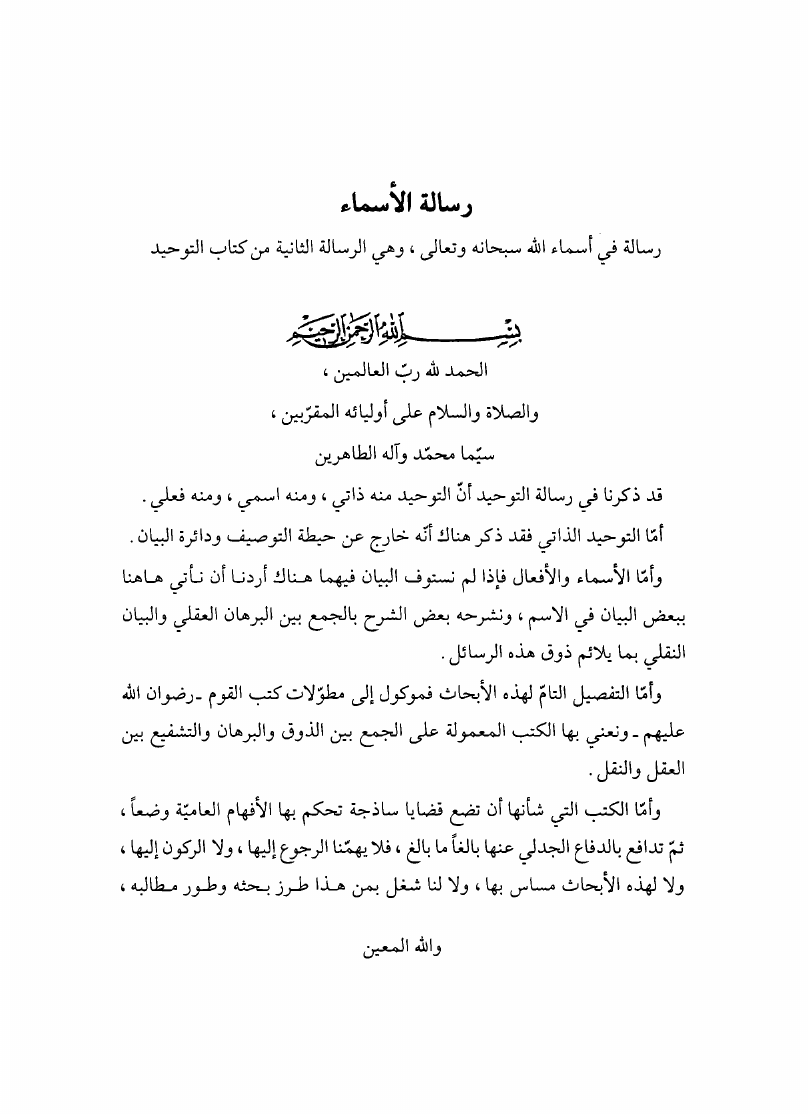 رسالة الأسماء
رسالة في أسماء الله سبحانه وتعالى ، وهي الرسالة الثانية من كتاب التوحيد
بسم الله الرحمن الرحيم
الحمد لله ربّ العالمين ،
والصلاة والسلام على أوليائه المقرّبين ،
سيّما محمّد وآله الطاهرين
قد ذكرنا في رسالة التوحيد أنّ التوحيد منه ذاتي ، ومنه اسمي ، ومنه فعلي .
أمّا التوحيد الذاتي فقد ذكر هناك أنّه خارج عن حيطة التوصيف ودائرة البيان .
وأمّا الأسماء والأفعال فإذا لم نستوف البيان فيهما هناك أردنا أن نأتي هاهنا
ببعض البيان في الاسم ، ونشرحه بعض الشرح بالجمع بين البرهان العقلي والبيان
النقلي بما يلائم ذوق هذه الرسائل .
وأمّا التفصيل التامّ لهذه الأبحاث فموكول إلى مطوّلات كتب القوم - رضوان الله
عليهم - ونعني بها الكتب المعمولة على الجمع بين الذوق والبرهان والتشفيع بين
العقل والنقل .
وأمّا الكتب التي شأنها أن تضع قضايا ساذجة تحكم بها الأفهام العاميّة وضعاً ،
ثمّ تدافع بالدفاع الجدلي عنها بالغاً ما بالغ ، فلا يهمّنا الرجوع إليها ، ولا الركون إليها ،
ولا لهذه الأبحاث مساس بها ، ولا لنا شغل بمن هذا طرز بحثه وطور مطالبه ،
والله المعين